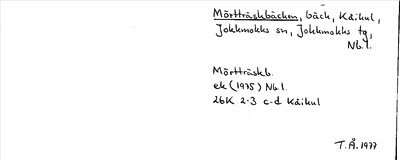 Mörtträskbäcken, bäck, Kåikul,
Jokkmokks sn, Jokkmokks tg,
Nb.l.
Mörtträskb.
ek (1975) Nb.l.
26K 2-3 c-d Kåikul
T.Å. 1977